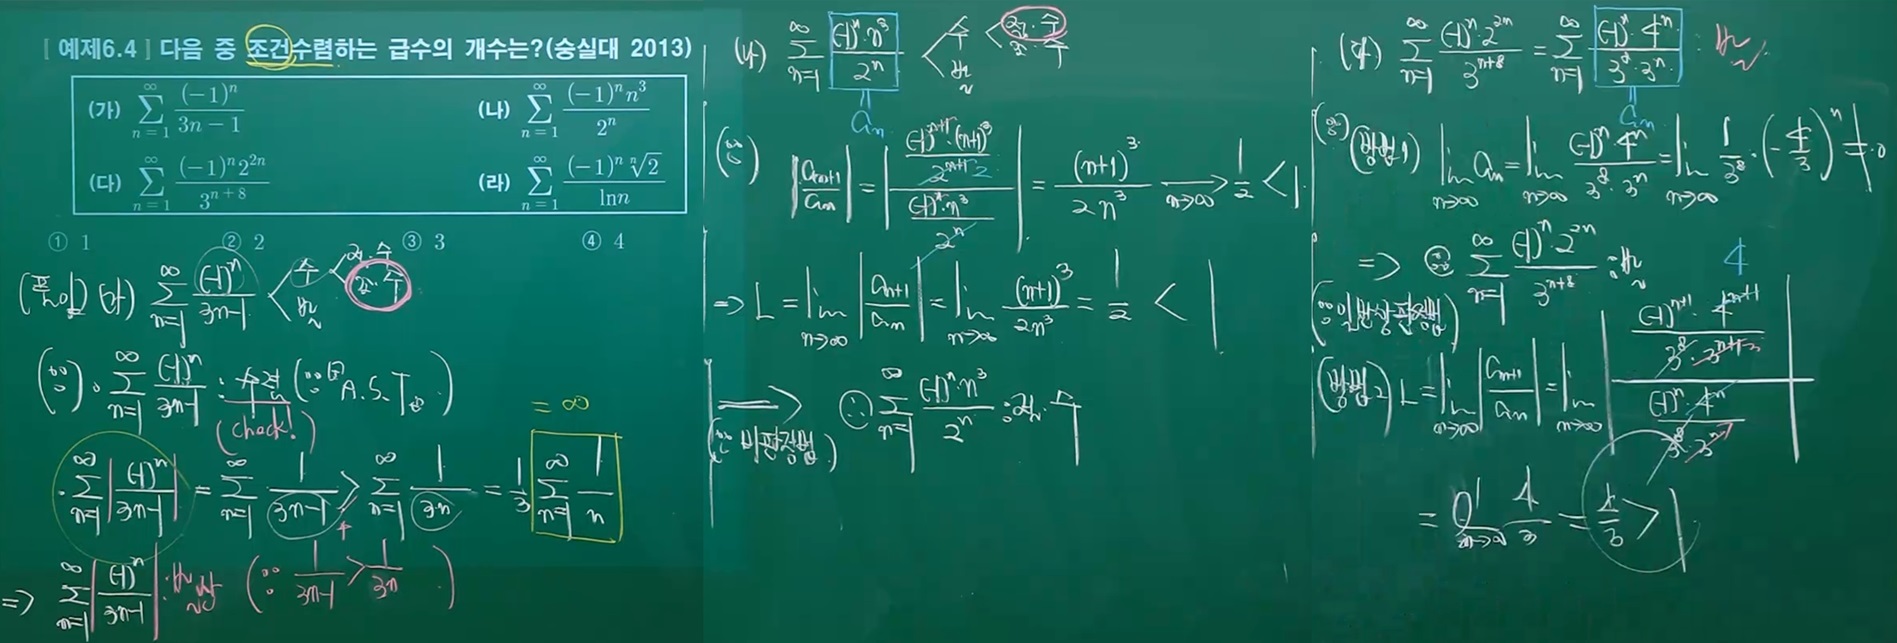 [ 예제6.4 ] 다음 중 조건수렴하는 급수의 개수는?(숭실대 2013)
(가) ∑_{n=1}^{∞} (-1)^n / (3n-1)   (나) ∑_{n=1}^{∞} (-1)^n n^3 / 2^n
(다) ∑_{n=1}^{∞} (-1)^n 2^{2n} / 3^{n+8}   (라) ∑_{n=1}^{∞} (-1)^n ⁿ√2 / ln n
① 1   ② 2   ③ 3   ④ 4
(풀이) (가) ∑_{n=1}^{∞} (-1)^n / (3n-1) < 수 < 절·수
조·수
발
(∵) · ∑_{n=1}^{∞} (-1)^n / (3n-1) : 수렴 (∵ A.S.T)
(check!)
= ∞
· ∑_{n=1}^{∞} |(-1)^n / (3n-1)| = ∑_{n=1}^{∞} 1/(3n-1) > ∑_{n=1}^{∞} 1/(3n) = 1/3 ∑_{n=1}^{∞} 1/n
=> ∑_{n=1}^{∞} |(-1)^n / (3n-1)| : 발산 (∵ 1/(3n-1) > 1/(3n))
(나) ∑_{n=1}^{∞} (-1)^n·n^3 / 2^n < 수 < 절·수
조·수
발
a_n
(∵) |a_{n+1}/a_n| = |((-1)^{n+1}·(n+1)^3 / 2^{n+1}) / ((-1)^n·n^3 / 2^n)| = (n+1)^3 / 2n^3 → (n→∞) 1/2 < 1
=> L = lim_{n→∞} |a_{n+1}/a_n| = lim_{n→∞} (n+1)^3 / 2n^3 = 1/2 < 1
=> ∴ ∑_{n=1}^{∞} (-1)^n·n^3 / 2^n : 절·수
(∵ 비판정법)
(다) ∑_{n=1}^{∞} (-1)^n·2^{2n} / 3^{n+8} = ∑_{n=1}^{∞} (-1)^n·4^n / 3^8·3^n : 발
a_n
(∵) (방법1) lim_{n→∞} a_n = lim_{n→∞} (-1)^n 4^n / 3^8·3^n = lim_{n→∞} 1/3^8·(-4/3)^n ≠ 0
=> ∴ ∑_{n=1}^{∞} (-1)^n·2^{2n} / 3^{n+8} : 발
(∵ 일반항판정법)
(방법2) L = lim_{n→∞} |a_{n+1}/a_n| = lim_{n→∞} |((-1)^{n+1}·4^{n+1} / 3^8·3^{n+1}) / ((-1)^n·4^n / 3^8·3^n)|
4
= lim_{n→∞} 4/3 = 4/3 > 1